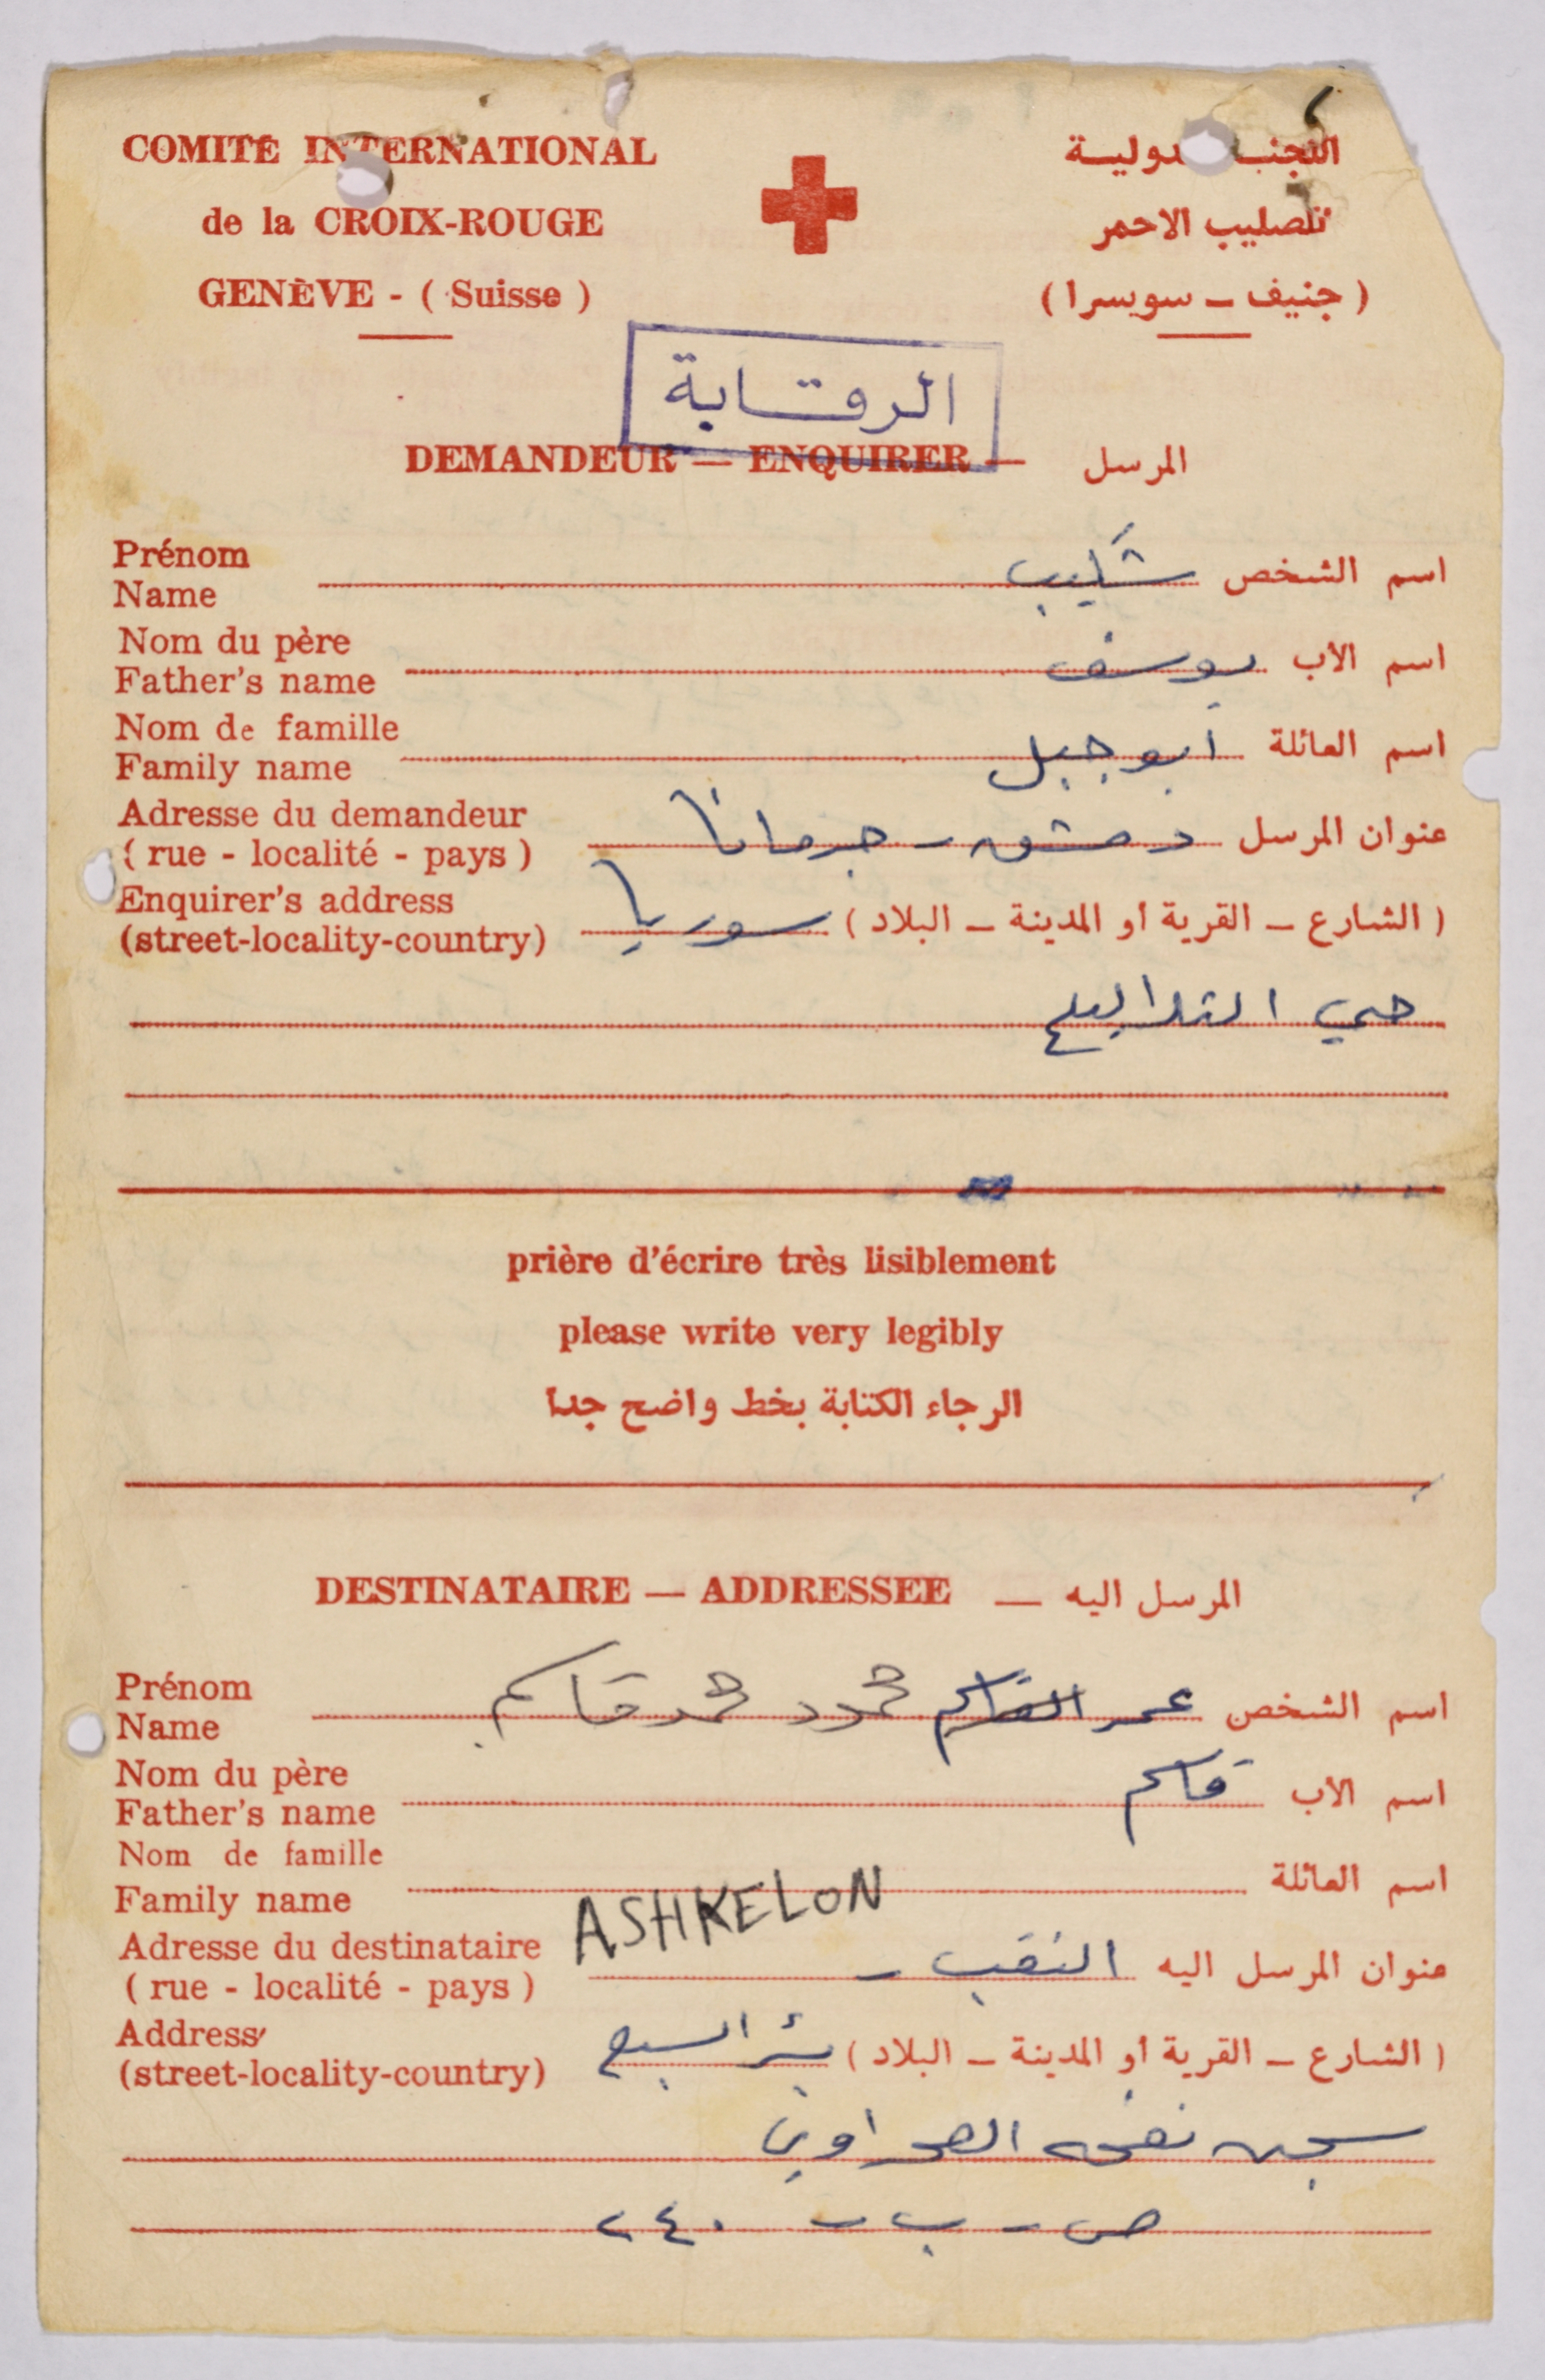 COMITÉ INTERNATIONAL
de la CROIX-ROUGE
GENÈVE - ( Suisse )
اللجنـ ـدوليـة
للصليب الاحمر
( جنيف ـ سويسرا )
الرقابة
DEMANDEUR — ENQUIRER — المرسل
Prénom
Name
اسم الشخص شكيب
Nom du père
Father's name
اسم الاب يوسف
Nom de famille
Family name
اسم العائلة ابو جبل
Adresse du demandeur
( rue - localité - pays )
عنوان المرسل دمشق - جرمانا
Enquirer's address
(street-locality-country)
( الشارع ـ القرية او المدينة ـ البلاد ) سوريا
حي
prière d'écrire très lisiblement
please write very legibly
الرجاء الكتابة بخط واضح جدا
DESTINATAIRE — ADDRESSEE — المرسل اليه
Prénom
Name
اسم الشخص عمر القاسم محمود محمد قاسم
Nom du père
Father's name
اسم الاب قاسم
Nom de famille
Family name
اسم العائلة
ASHKELON
Adresse du destinataire
( rue - localité - pays )
عنوان المرسل اليه النقب -
Address
(street-locality-country)
( الشارع ـ القرية او المدينة ـ البلاد ) بئر السبع
سجن نفحه الصحراوي
ص - ب - ٢٤٠